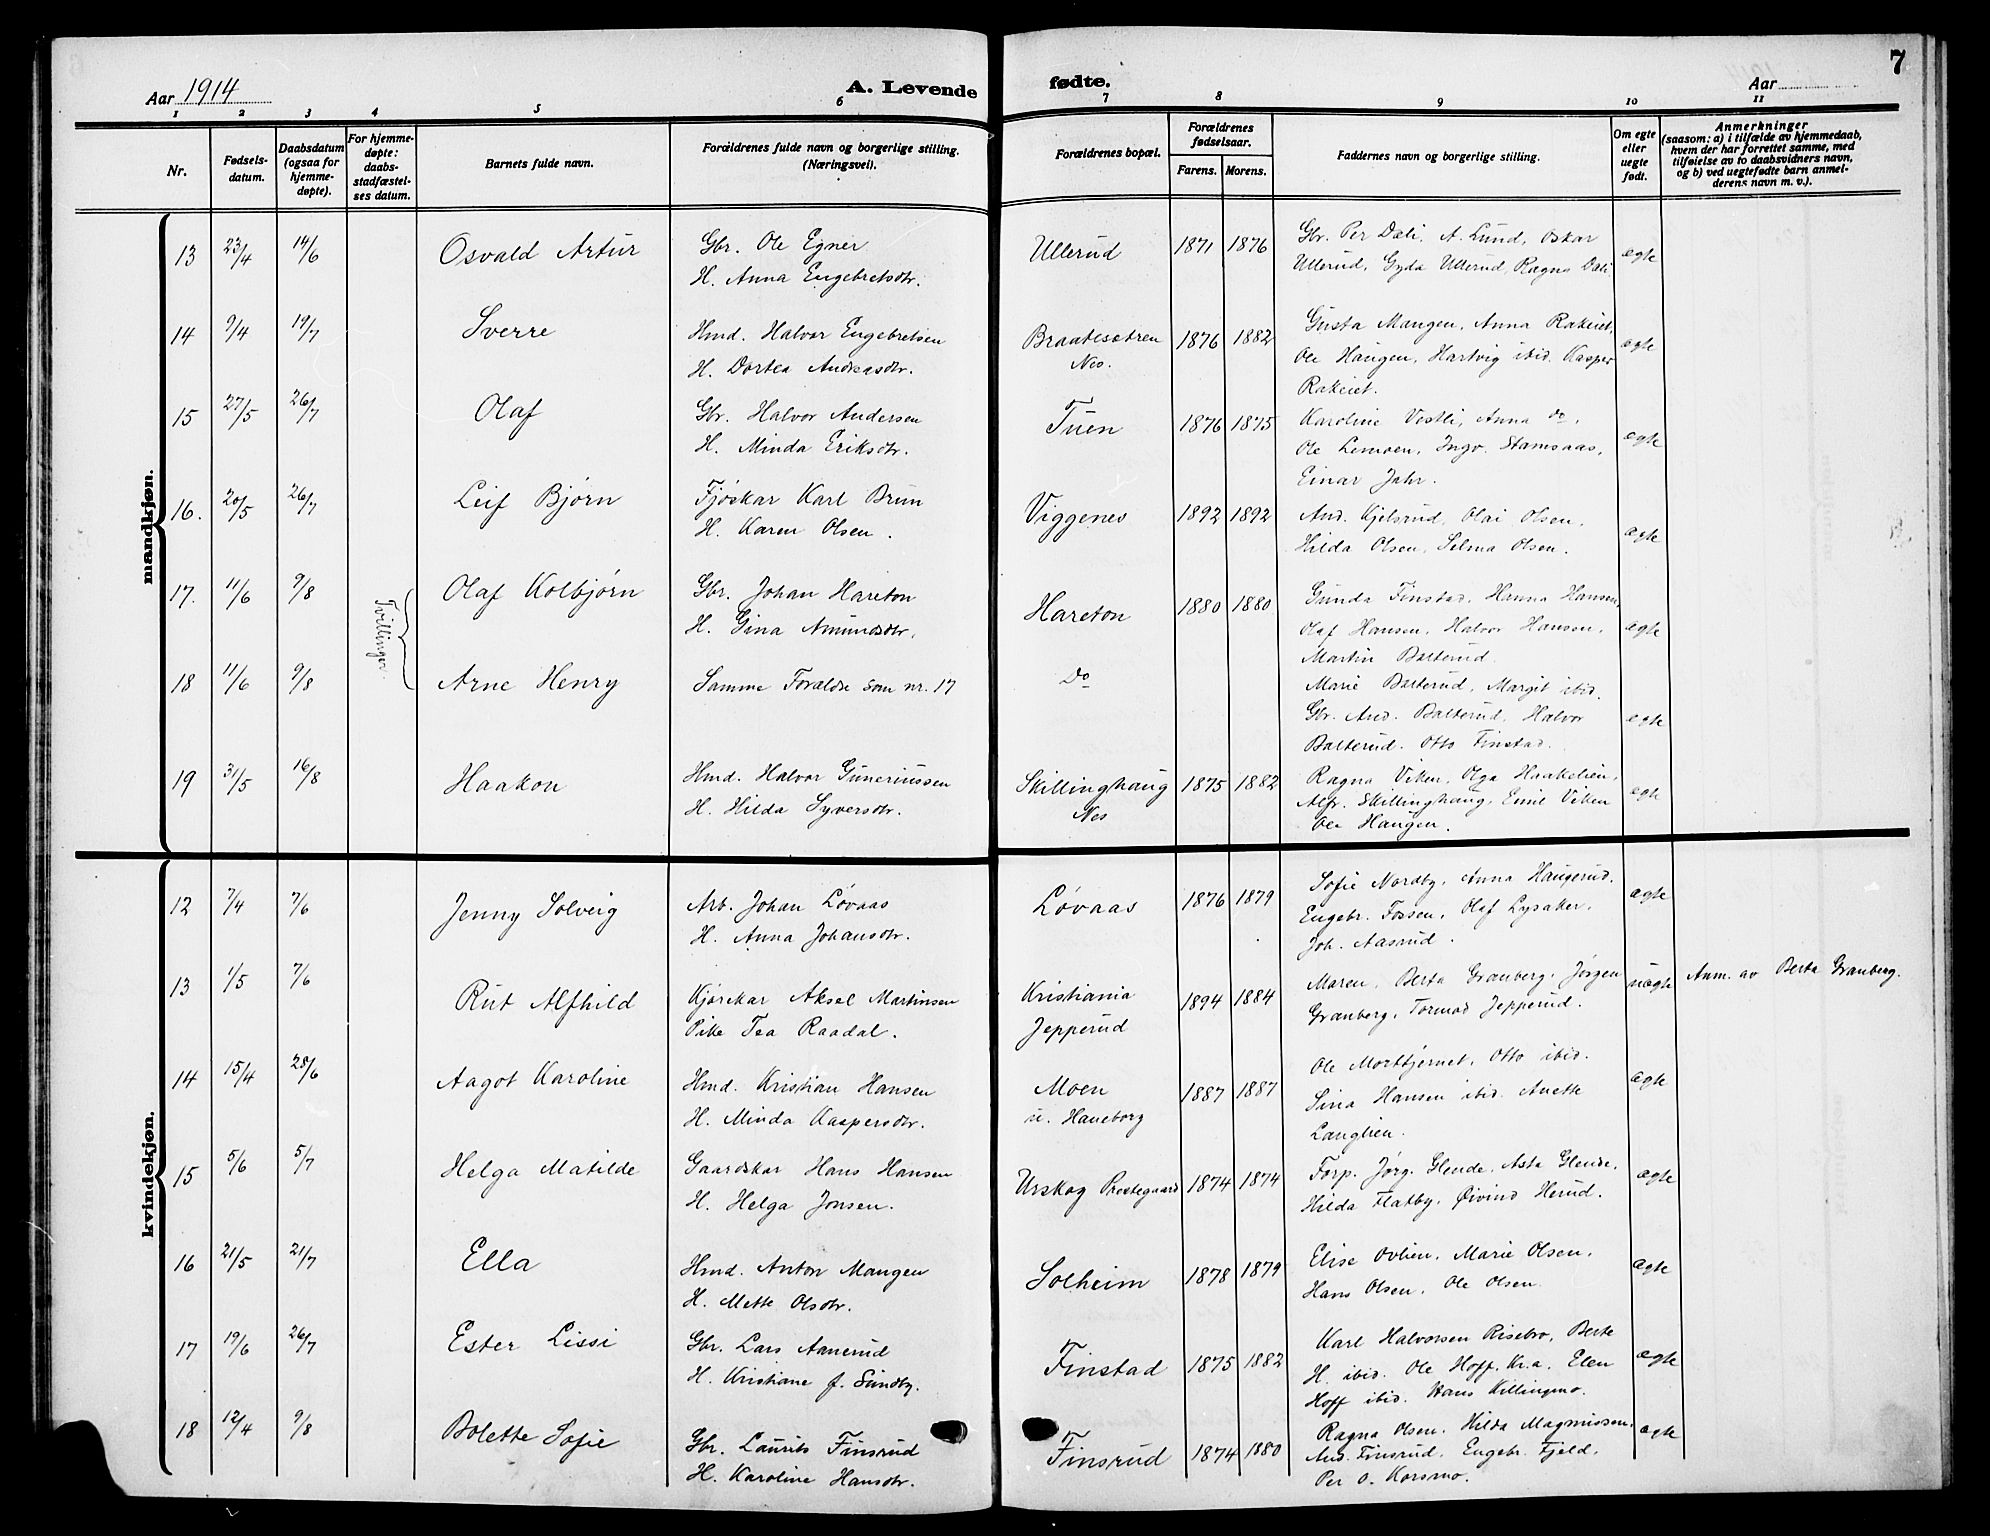 7
Aar 1914
A. Levende fødte.
Aar
1 2 3 4 5 6 7 8 9 10 11
Nr.
Fødsels-
datum.
Daabsdatum
(ogsaa for
hjemme-
døpte).
For hjemme-
døpte:
daabs-
stadfæstel-
ses datum.
Barnets fulde navn.
Forældrenes fulde navn og borgerlige stilling.
(Næringsvei).
Forældrenes bopæl.
Forældrenes
fødselsaar.
Farens. Morens.
Faddernes navn og borgerlige stilling.
Om egte
eller
uegte
født.
Anmerkninger
(saasom: a) i tilfælde av hjemmedaab,
hvem der har forrettet samme, med
tilføielse av to daabsvidners navn,
og b) ved uegtefødte barn anmel-
derens navn m. v.).
mandkjøn.
13 23/4 14/6 Osvald Artur
Gbr. Ole Egner
H. Anna Engebretsdtr.
Ullerud 1871 1876
Gbr. Per Dali, A. Lund, Oskar
Ullerud, Gyda Ullerud, Ragna Dali
egte
14 9/4 19/7 Sverre
Hmd. Halvor Engebretsen
H. Dortea Andreasdtr.
Braatesætren
Nes.
1876 1882
Gusta Mangen, Anna Rakeiet,
Ole Haugen, Hartvig ibid. Kasper
Rakeiet.
egte
15 27/5 26/7 Olaf
Gbr. Halvor Andersen
H. Minda Eriksdtr.
Tuen 1876 1875
Karoline Vestli, Anna do,
Ole Lemoen, Ingv. Stamsaas,
Einar Jahr.
egte
16. 20/5 26/7 Leif Bjørn
Fjøskar Karl Brun
H. Karen Olsen.
Viggenes 1892 1892
And. Kjelsrud, Olai Olsen.
Hilda Olsen, Selma Olsen.
egte
17. 11/6 9/8 Tvillinger Olaf Kolbjørn
Gbr. Johan Hareton
H. Gina Amundsdtr.
Hareton 1880 1880
Gunda Finstad, Hanna Hansen,
Olaf Hansen, Halvor Hansen,
Martin Bålterud
egte
18 11/6 9/8 Arne Henry
Samme Forældre som nr. 17
Do
Marie Balterud, Margit ibid.
Gbr. And. Balterud, Halvor
Balterud. Otto Finstad.
egte
19 31/5 16/8 Haakon
Hmd. Halvor Guneriussen
H. Hilda Syversdtr.
Skillinghaug
Nes
1875 1882
Ragna Viken, Olga Haakelien,
Alfr. Skillinghaug, Emil Viken
Ole Haugen.
egte
kvindekjøn.
12 7/4 7/6 Jenny Solveig
Arb. Johan Løvaas
H. Anna Johansdtr.
Løvaas 1876 1879
Sofie Nordby, Anna Haugerud.
Engebr. Fossen, Olaf Lysaker.
Joh. Aasrud.
egte
13 1/5 7/6 Rut Alfhild
Kjørekar Aksel Martinsen
Pike Tea Raadal.
Kristiania
Jepperud
1894 1884
Maren, Berta Granberg, Jørgen
Granberg, Tormod Jepperud.
uegte
Anm. av Berta Granberg.
14 15/4 28/6 Aagot Karoline
Hmd. Kristian Hansen
H. Minda Kaspersdtr.
Moen
u. Haneborg
1887 1887
Ole Morttjernet, Otto ibid.
Sina Hansen ibid. Anette
Langlien.
egte
15 5/6 5/7 Helga Matilde
Gaardskar Hans Hansen
H. Helga Jonsen.
Urskog Prestegaard 1874 1874
Forp. Jørg. Glende, Asta Glende,
Hilda Flatby, Øivind Herud.
egte
16 21/5 21/7 Ella
Hmd. Anton Mangen
H. Mette Olsdtr.
Solheim 1878 1879
Elise Ovlien, Marie Olsen,
Hans Olsen, Ole Olsen.
egte
17 19/6 26/7 Ester Lissi
Gbr. Lars Aanerud
H. Kristiane f. Sundby.
Finstad 1875 1882
Karl Halvorsen Risebro, Berte
H. ibid. Ole Hoff, Kr.a. Elen
Hoff ibid. Hans Killingmo.
egte
18 12/4 9/8 Bolette Sofie
Gbr. Laurits Finsrud
H. Karoline Hansdtr.
Finsrud 1874 1880
Ragna Olsen, Hilda Magnussen,
And. Finsrud, Engebr. Fjeld,
Per O. Korsmo.
egte